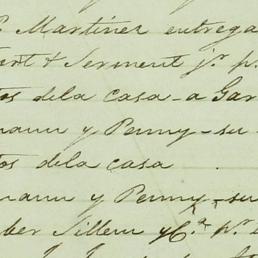 Martinez entrega
& Serment jr. p.
tos dela casa - a Gar
mann y Penny - su
tos dela casa
mann y Penny - su
ber Sillem y Ca. pr.